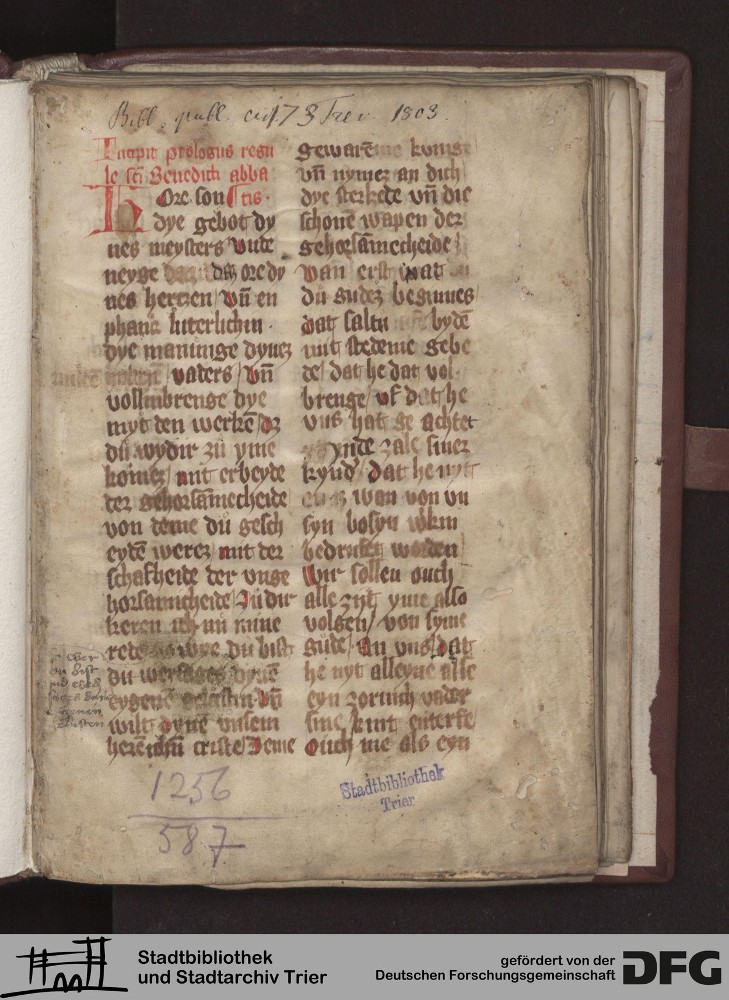 Bibl. publ. civ. Trev. 1803.
Incipit prologus regu
le sc̄i Benedicti abba
Hore son tis.
dye gebot dy
nes meysters vnde
neyge daz ore dy
nes hertzen vn̄ en
phanc luterlichin
dye maninge dynez
vaders vn̄
vollinbrenge dye
myt den werkē daz
du wydir zu yme
komez mit erbeyde
der gehorsāmecheide
von deme du gesch
eydē werez mit der
schafheide der vnge
horsamicheide Zu dir
keren ich nu mine
rede wye du bist
du dynē
eygenē vn̄
wilt dyne vnsem
herē ih̄u criste Deme
gewarē kunige
vn̄ nymez an dich
dye sterkede vn̄ die
schone wapen der
gehorsāmecheide
wan erst wat
du gudez beginnes
dat saltu bydē
mit stedeme gebe
de dat he dat vol
brenge vf dat he
vns hat ge achtet
zale siner
kynd dat he nyt
wan von vn
syn bosyn wkin
bedrubet werden
Wir sollen ouch
alle zyt yme also
volgen von syme
gude an vns dat
he nyt alleyne alse
eyn zornich vader
sine kint enterfe
Ouch me als eyn
1256
587
Stadtbibliothek
Trier
Stadtbibliothek
und Stadtarchiv Trier
gefördert von der
Deutschen Forschungsgemeinschaft
DFG